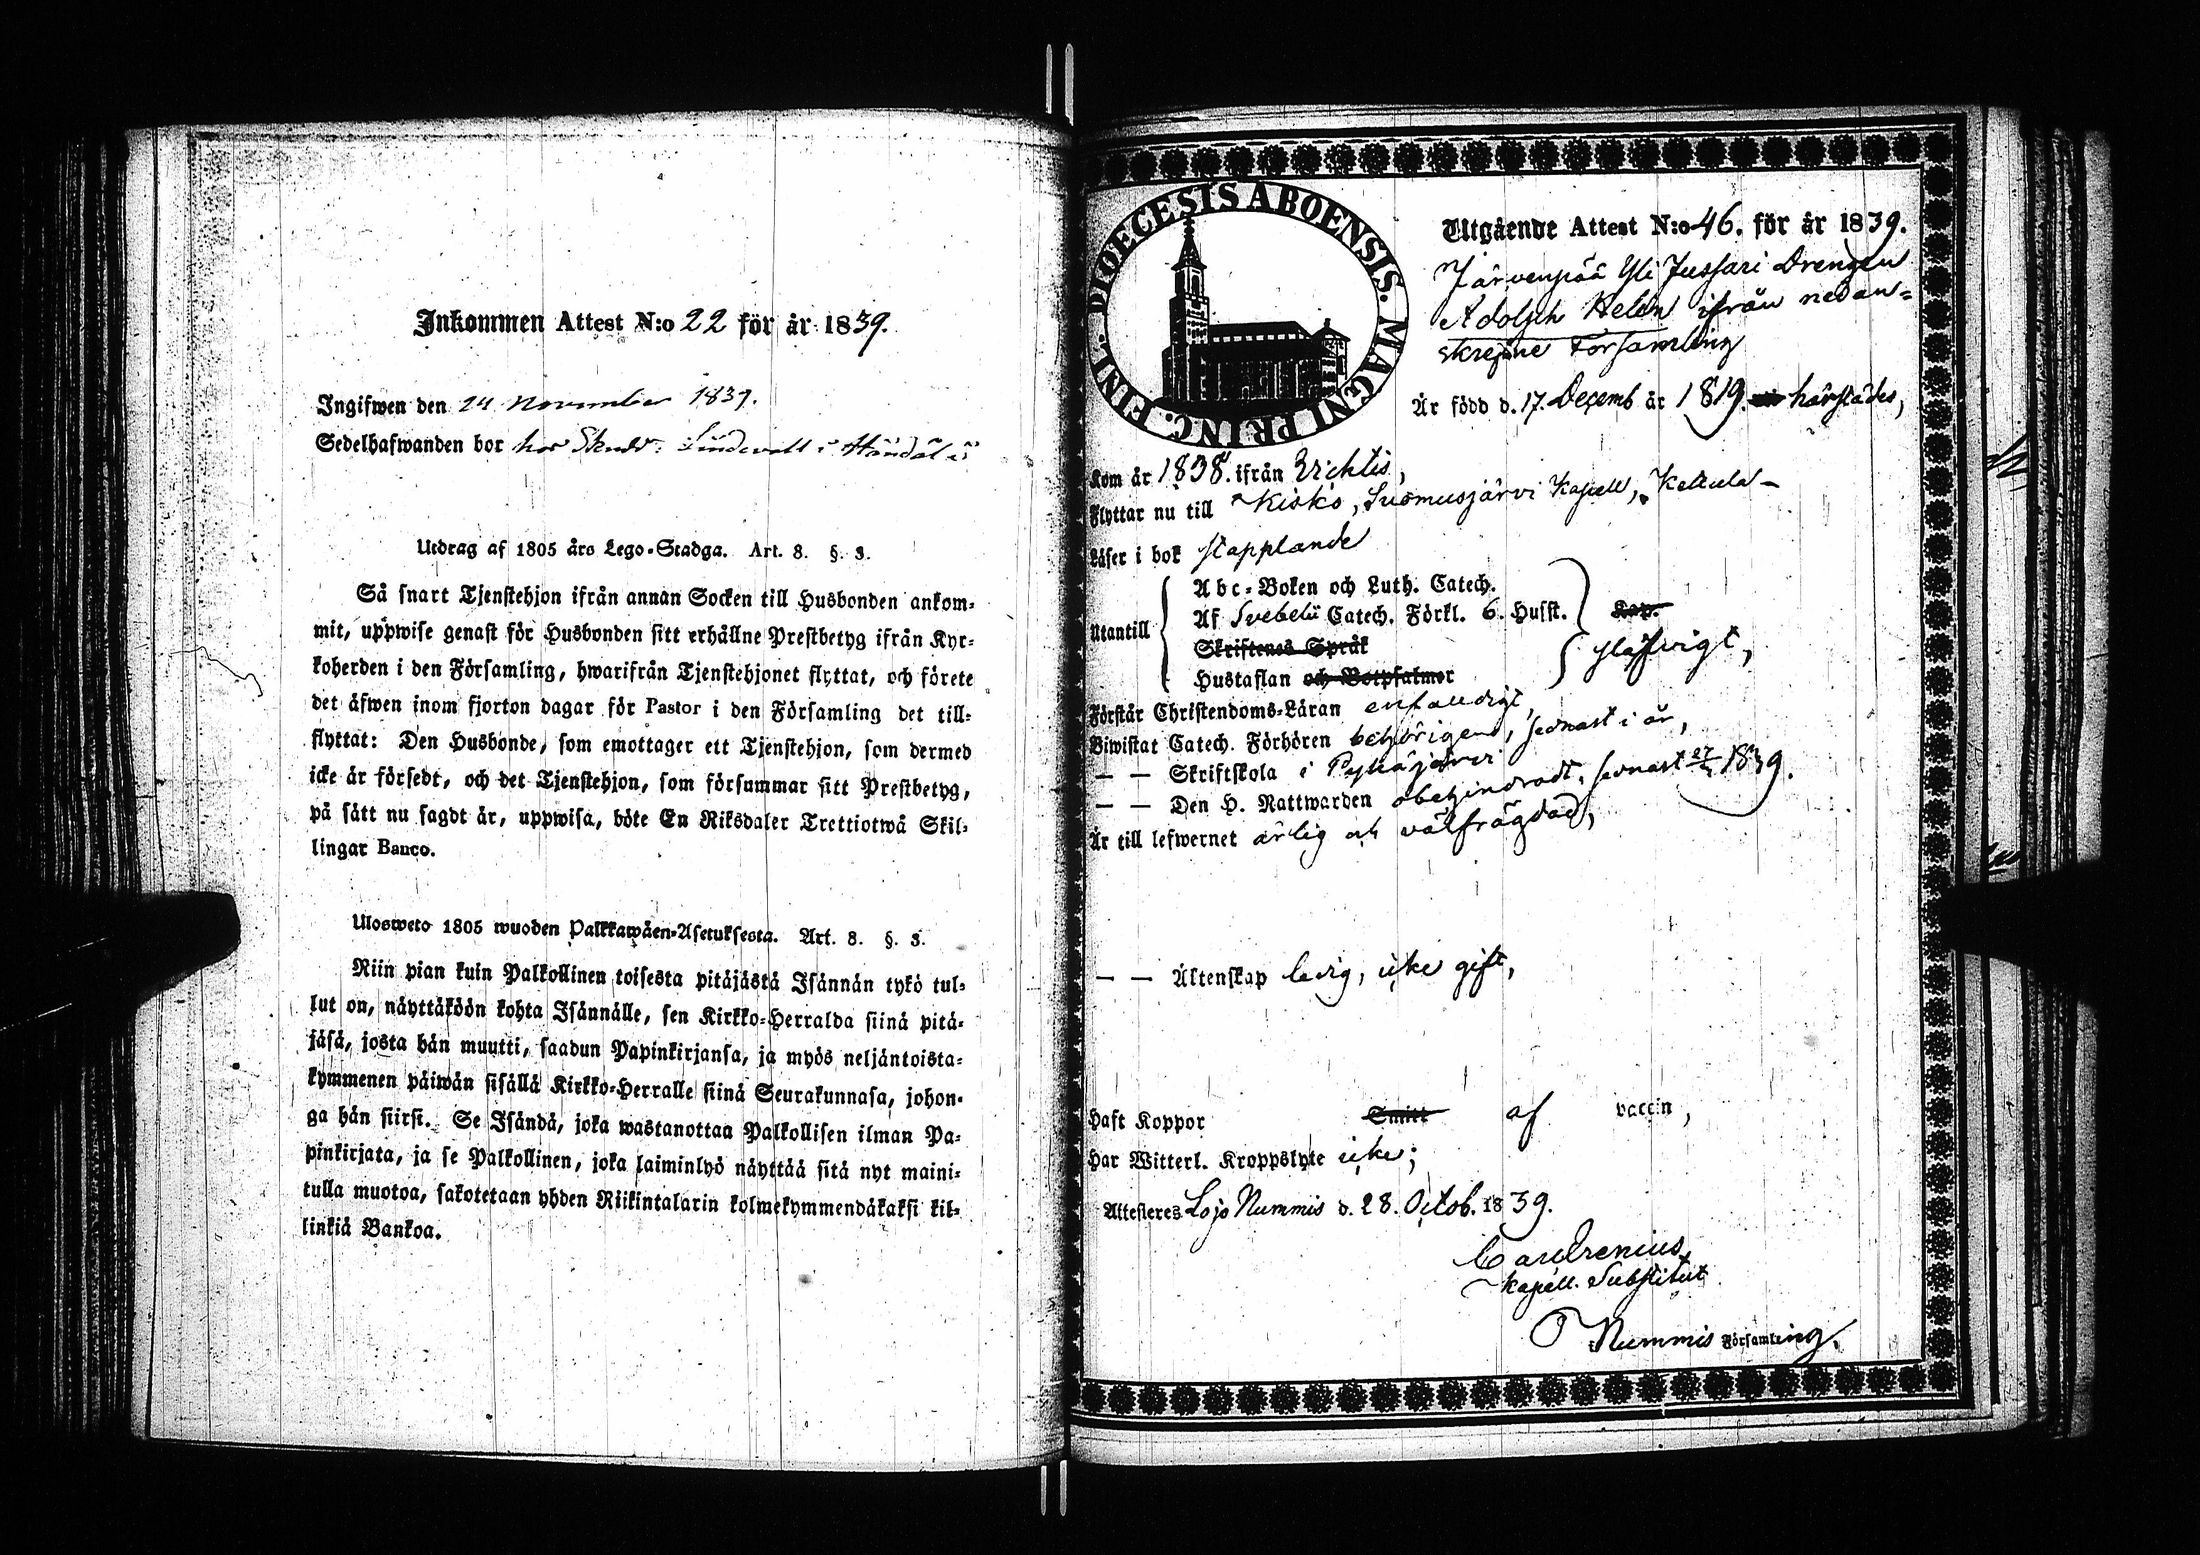 Inkommen Attest N:o 22 för år 1839.
Ingifwen den 24 November 1839.
Sedelhafwanden bor hos
Utdrag af 1805 års Lego-Stadga. Art. 8. §. 3.
Så snart Tjenstehjon ifrån annan Socken till Husbonden ankom-
mit, uppwise genast för Husbonden sitt erhållne Prestbetyg ifrån Kyr-
koherden i den Församling, hwarifrån Tjenstehjonet flyttat, och förete
det äfwen inom fjorton dagar för Pastor i den Församling det till-
flyttat: Den Husbonde, som emottager ett Tjenstehjon, som dermed
icke är försedt, och det Tjenstehjon, som försummar sitt Prestbetyg,
på sätt nu sagdt är, uppwisa, böte En Riksdaler Trettiotwå Skil-
lingar Banco.
Ulosweto 1805 wuoden Palkkawäen-Asetuksesta. Art. 8. §. 3.
Niin pian kuin Palkollinen toisesta pitäjästä Isännän tykö tul-
lut on, näyttäköön kohta Isännälle, sen Kirkko-Herralda siinä pitä-
jäsä, josta hän muutti, saadun Papinkirjansa, ja myös neljäntoista-
kymmenen päiwän sisällä Kirkko-Herralle siinä Seurakunnasa, johon-
ga hän siirsi. Se Isändä, joka wastanottaa Palkollisen ilman Pa-
pinkirjata, ja se Palkollinen, joka laiminlyö näyttää sitä nyt maini-
tulla muotoa, sakotetaan yhden Riikintalarin kolmekymmendäkaksi kil-
linkiä Bankoa.
DIOECESIS ABOENSIS. MAGNI PRINC. FINL.
Utgående Attest N:o 46. för år 1839.
Järvenpää Yli Jussari Drengen
Adolph Helen ifrån nedan-
skrefne Församling
Är född d. 17. Decemb år 1819. härstädes,
Kom år 1838. ifrån Vichtis,
Flyttar nu till Kisko, Suomusjärvi Kapell, Kettula
Läser i bok stapplande
Abc-Boken och Luth. Catech.
Utantill Af Svebelii Catech. Förkl. 6. Husst. Kap.
Skriftenes Språk slätvigt,
Hustaflan och Botpsalmer
Förstår Christendoms-Läran enfaldigt,
Biwistat Catech. Förhören behörigens, sednast i år,
— — Skriftskola i Pyhäjärvi
— — Den H. Nattwarden obehindradt, sednast 27/ 1839.
Är till lefwernet ärlig och välfrägdad,
— — Äktenskap ledig, icke gift,
Haft Koppor Smitt af vaccin,
Har Witterl. Kroppslyte icke;
Attesteres Lojo Nummis d. 28. Octob. 1839.
Kapell. Substitut
Nummis Församling.